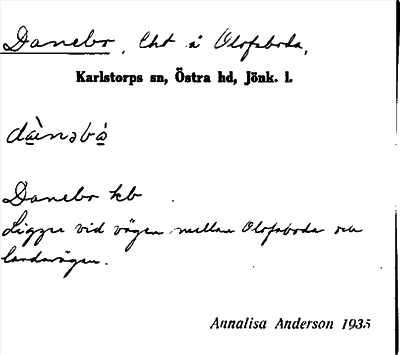 Danebo, Lht å Olofsboda,
Karlstorps sn, Östra hd, Jönk. l.
dànəbó
Danebo kb
Ligger vid vägen mellan Olofsboda och
landsvägen.
Annalisa Anderson 1935